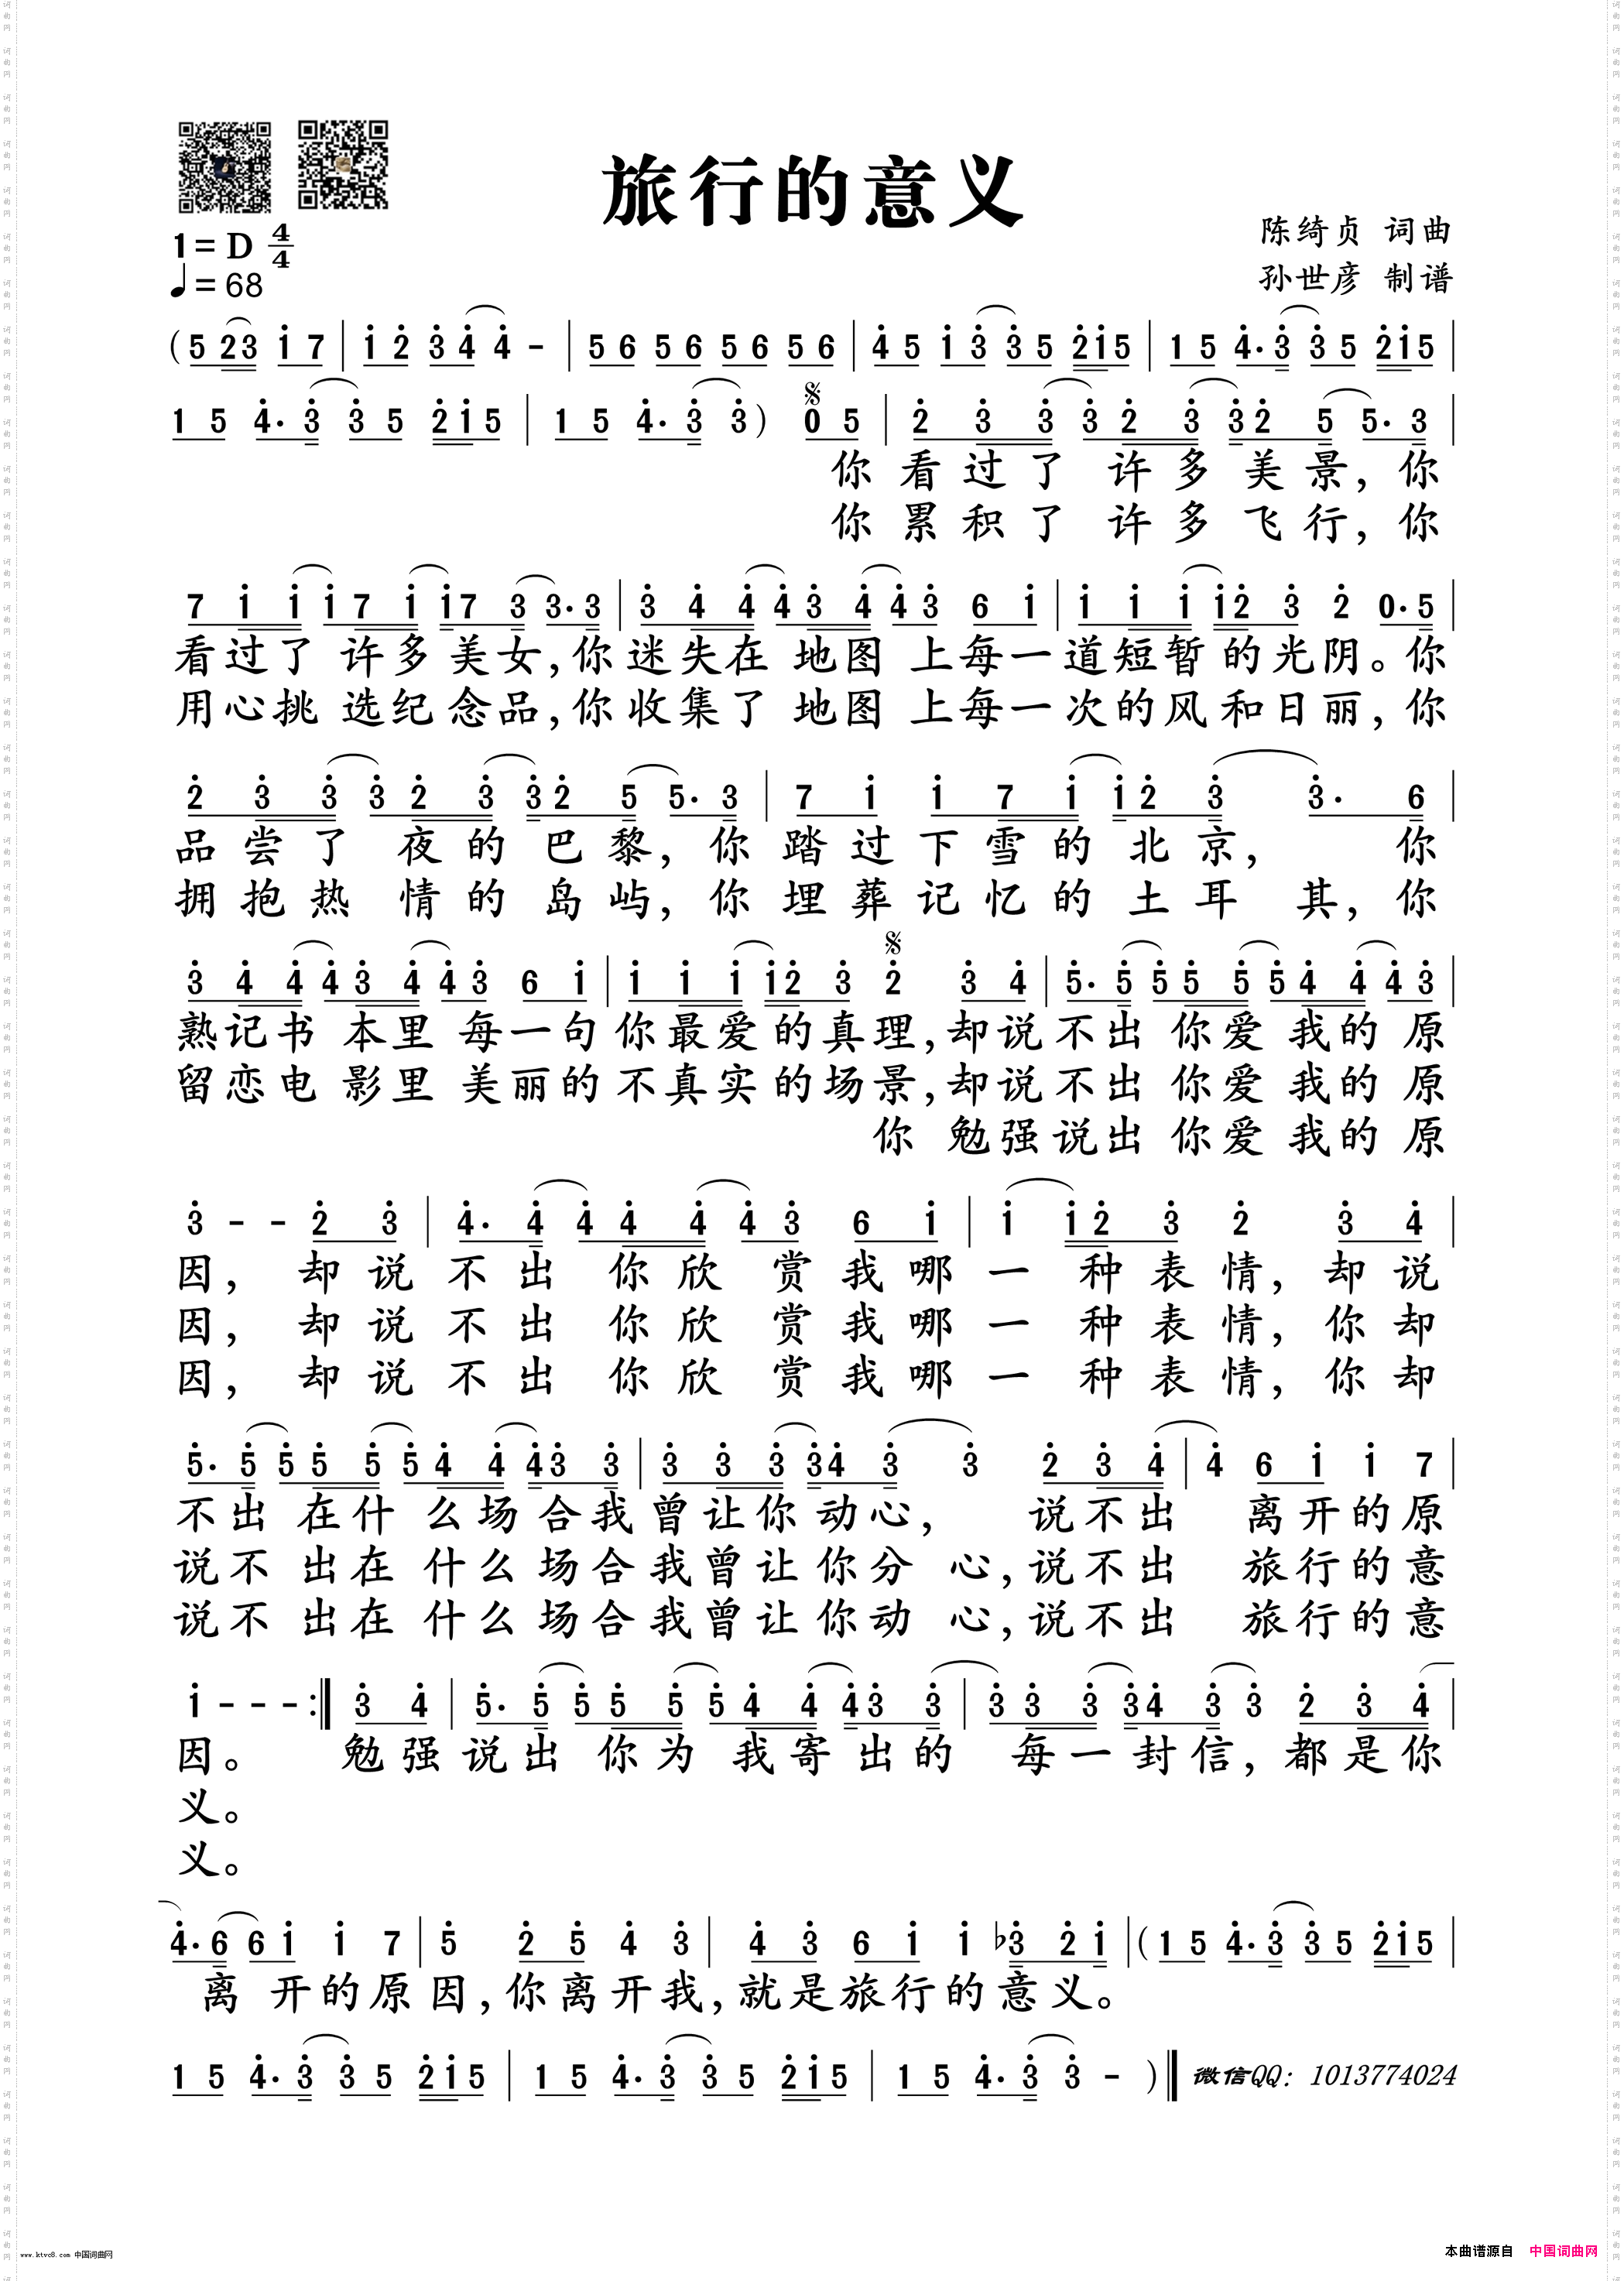 旅行的意义
陈绮贞 词曲
孙世彦 制谱
1= D 4/4
♩= 68
(5 23 1 7 | 1 2 3 4 4 - | 5 6 5 6 5 6 5 6 | 4 5 1 3 3 5 2 1 5 | 1 5 4· 3 3 5 2 1 5 |
1 5 4· 3 3 5 2 1 5 | 1 5 4· 3 3 ) 0 5 | 2 3 3 3 2 3 3 2 5 5· 3 |
你 看 过 了 许 多 美 景, 你
你 累 积 了 许 多 飞 行, 你
7 1 1 1 7 1 1 7 3 3· 3 | 3 4 4 4 3 4 4 3 6 1 | 1 1 1 1 2 3 2 0· 5 |
看 过 了 许 多 美 女, 你 迷 失 在 地 图 上 每 一 道 短 暂 的 光 阴。 你
用 心 挑 选 纪 念 品, 你 收 集 了 地 图 上 每 一 次 的 风 和 日 丽, 你
2 3 3 3 2 3 3 2 5 5· 3 | 7 1 1 7 1 1 2 3 3· 6 |
品 尝 了 夜 的 巴 黎, 你 踏 过 下 雪 的 北 京, 你
拥 抱 热 情 的 岛 屿, 你 埋 葬 记 忆 的 土 耳 其, 你
3 4 4 4 3 4 4 3 6 1 | 1 1 1 1 2 3 2 3 4 | 5· 5 5 5 5 5 4 4 4 3 |
熟 记 书 本 里 每 一 句 你 最 爱 的 真 理, 却 说 不 出 你 爱 我 的 原
留 恋 电 影 里 美 丽 的 不 真 实 的 场 景, 却 说 不 出 你 爱 我 的 原
你 勉 强 说 出 你 爱 我 的 原
3 - - 2 3 | 4· 4 4 4 4 4 3 6 1 | 1 1 2 3 2 3 4 |
因, 却 说 不 出 你 欣 赏 我 哪 一 种 表 情, 却 说
因, 却 说 不 出 你 欣 赏 我 哪 一 种 表 情, 你 却
因, 却 说 不 出 你 欣 赏 我 哪 一 种 表 情, 你 却
5· 5 5 5 5 5 4 4 4 3 3 | 3 3 3 3 4 3 3 2 3 4 | 4 6 1 1 7 |
不 出 在 什 么 场 合 我 曾 让 你 动 心, 说 不 出 离 开 的 原
说 不 出 在 什 么 场 合 我 曾 让 你 分 心, 说 不 出 旅 行 的 意
说 不 出 在 什 么 场 合 我 曾 让 你 动 心, 说 不 出 旅 行 的 意
1 - - - :‖ 3 4 | 5· 5 5 5 5 5 4 4 4 3 3 | 3 3 3 3 4 3 3 2 3 4 |
因。 勉 强 说 出 你 为 我 寄 出 的 每 一 封 信, 都 是 你
义。
义。
4· 6 6 1 1 7 | 5 2 5 4 3 | 4 3 6 1 1 ♭3 2 1 | (1 5 4· 3 3 5 2 1 5 |
离 开 的 原 因, 你 离 开 我, 就 是 旅 行 的 意 义。
1 5 4· 3 3 5 2 1 5 | 1 5 4· 3 3 5 2 1 5 | 1 5 4· 3 3 - ) ‖ 微信QQ: 1013774024
www.ktvc8.com 中国词曲网
本曲谱源自 中国词曲网